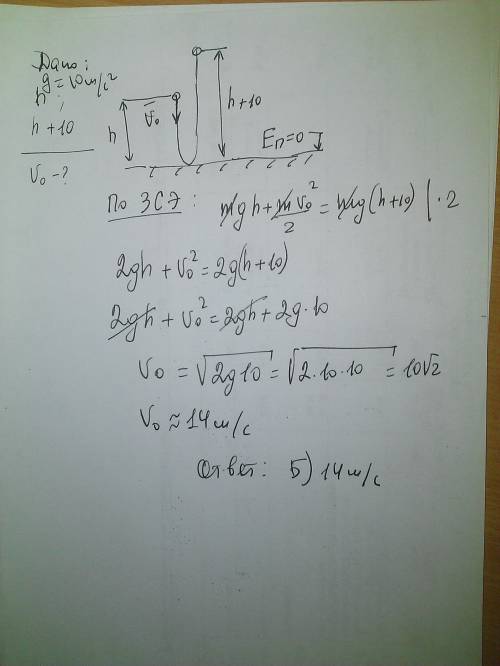 Дано:
g = 10 м/с²
h ;
h + 10
V₀ - ?
h
V̅₀
h + 10
Eп = 0
По ЗСЭ: mgh + mV₀²/2 = mg(h+10) | · 2
2gh + V₀² = 2g(h+10)
2gh + V₀² = 2gh + 2g·10
V₀ = √2g10 = √2·10·10 = 10√2
V₀ ≈ 14 м/с
Ответ: Б) 14 м/с